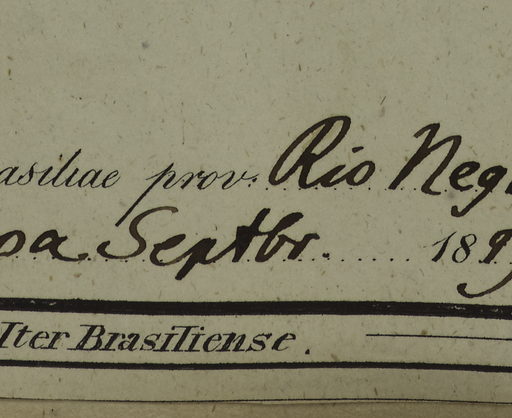 asiliae prov. Rio Neg
pa Septbr. 18
Iter Brasiliense.